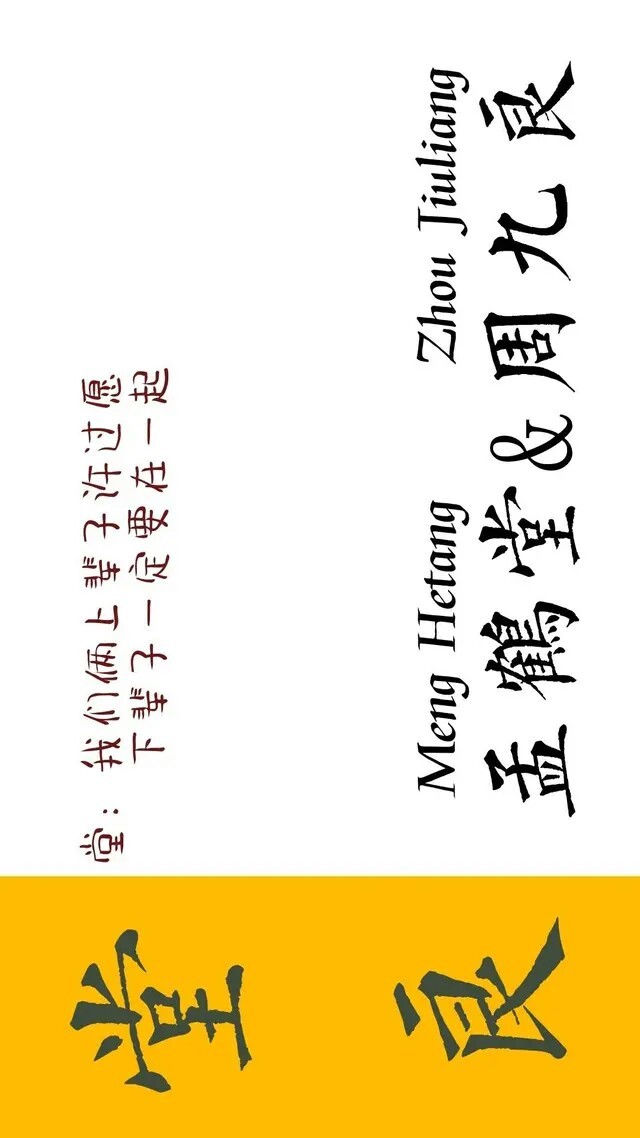 堂
良
堂：我们俩上辈子许过愿
下辈子一定要在一起
Meng Hetang Zhou Jiuliang
孟鶴堂&周九良